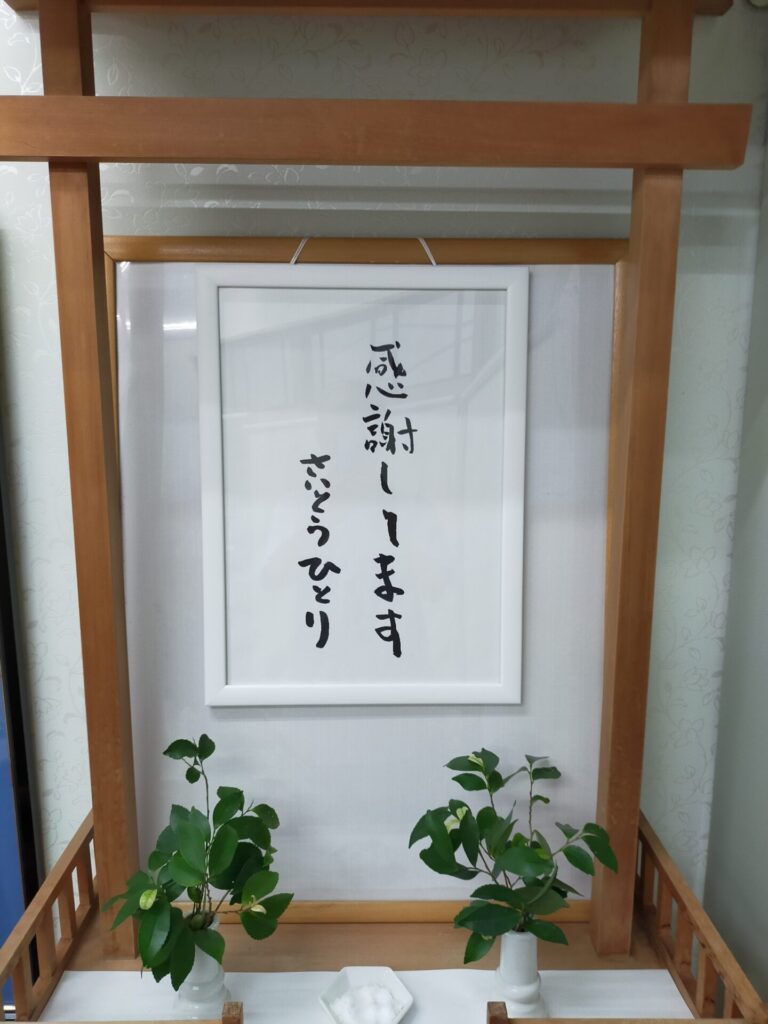 感謝してます
さいとうひとり